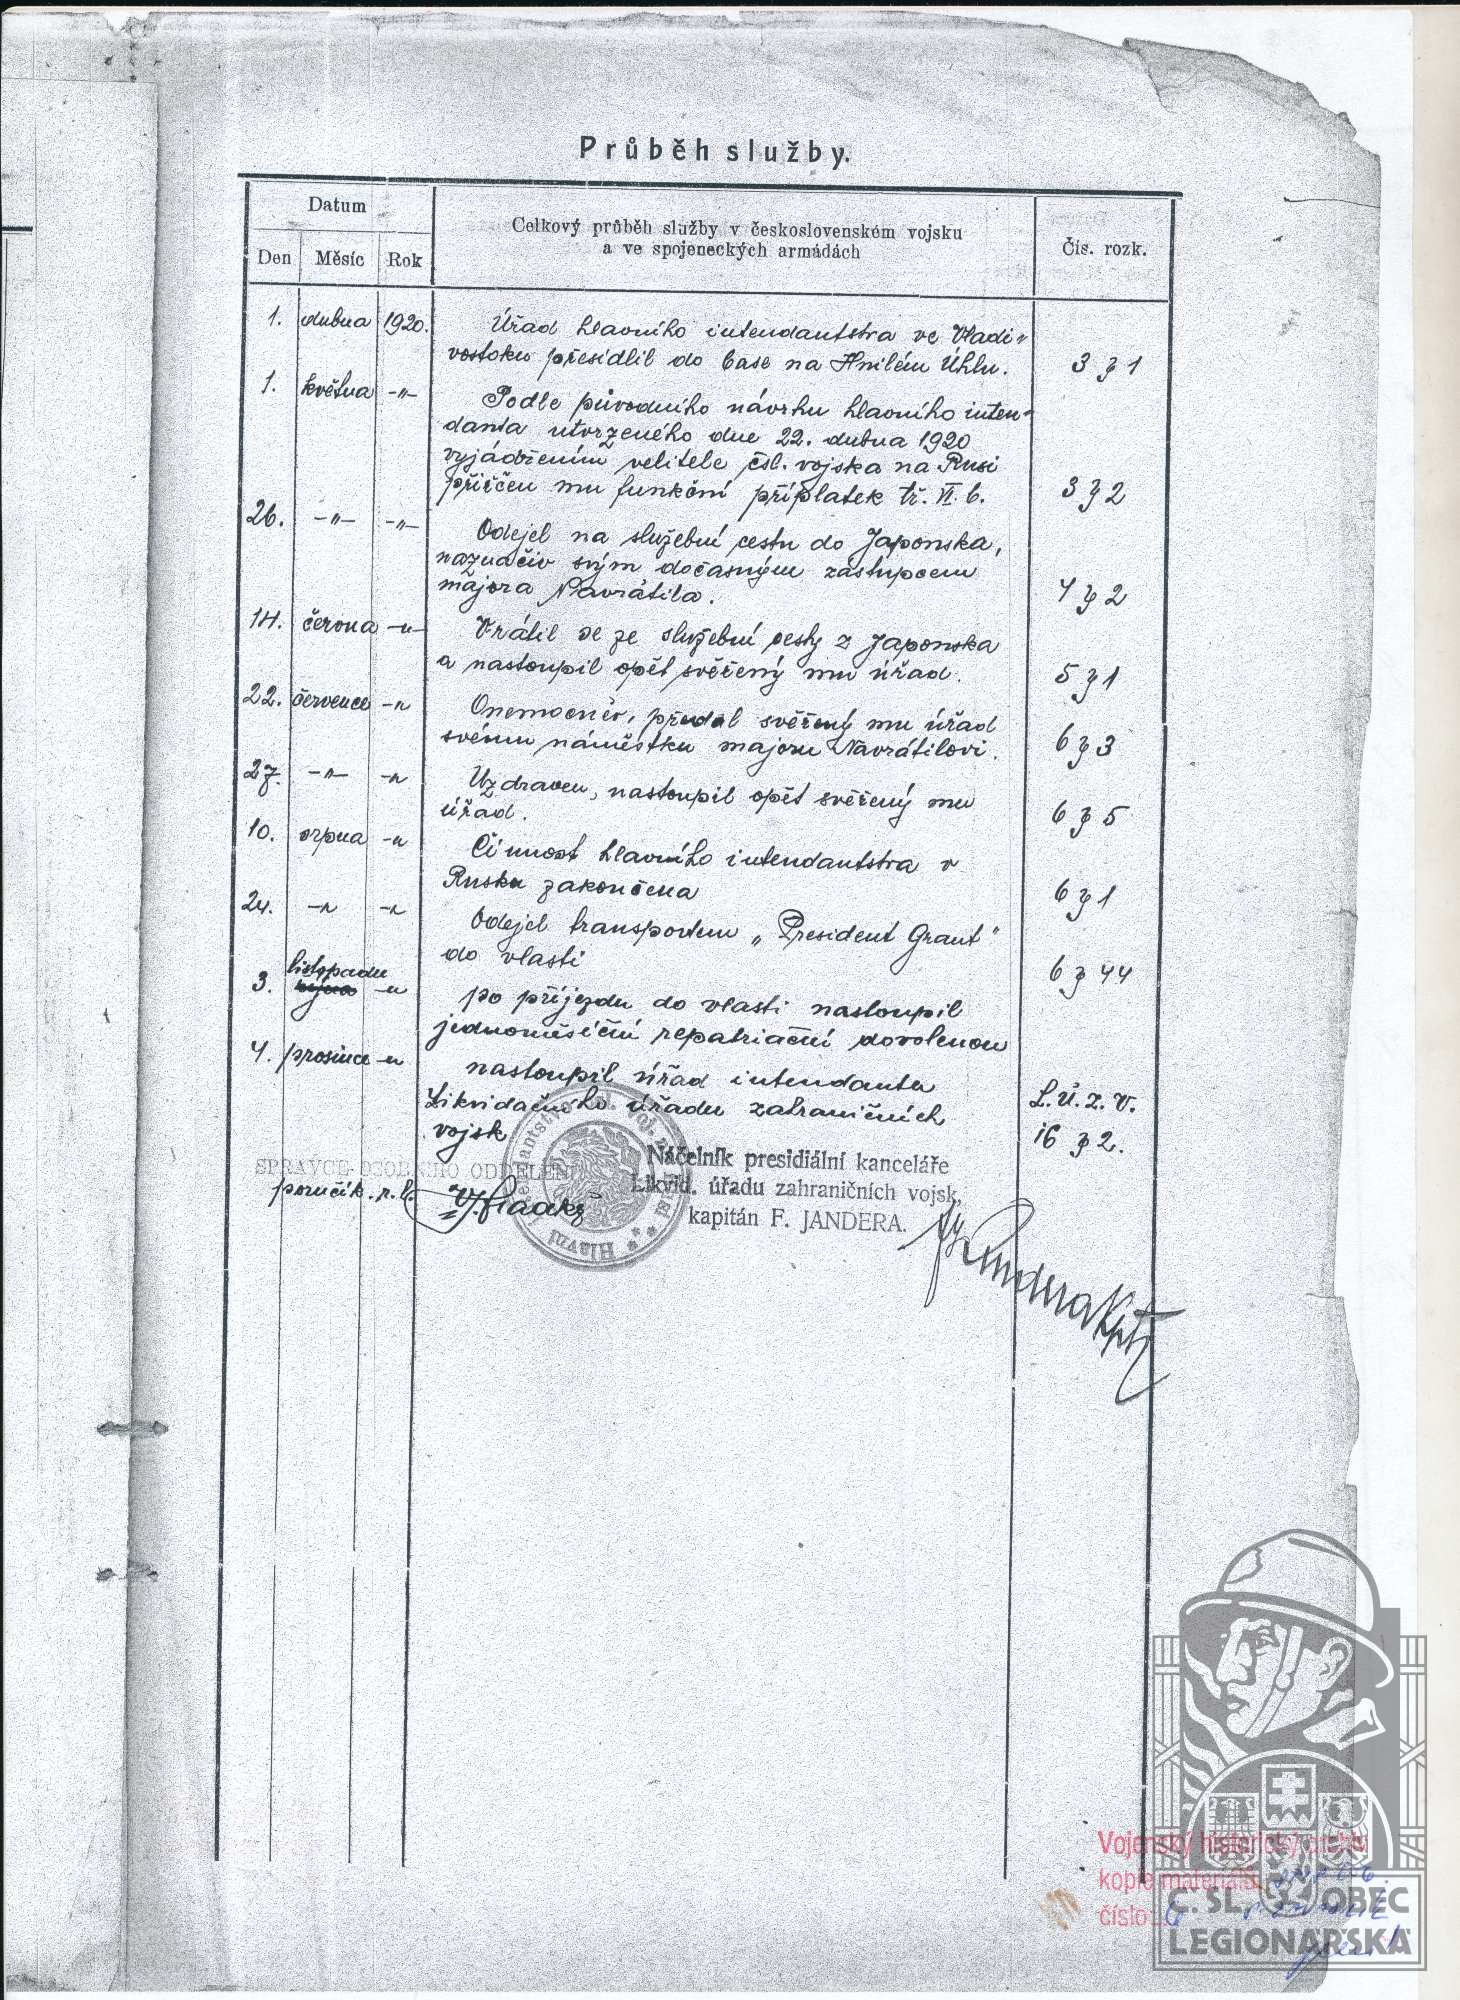 Průběh služby.
Datum
Celkový průběh služby v československém vojsku
a ve spojeneckých armádách
Čís. rozk.
Den Měsíc Rok
1. dubna 1920. Úřad hlavního intendantstva ve Vladi-
vostoku přesídlil do base na Hnilém Úhlu. 3 § 1
1. května -"- Podle původního návrhu hlavního inten-
danta utvrzeného dne 22. dubna 1920
vyjádřením velitele čsl. vojska na Rusi
přiřčen mu funkční příplatek tř. VI. b. 3 § 2
26. -"- -"- Odejel na služební cestu do Japonska,
naznačiv svým dočasným zástupcem
majora Navrátila. 4 § 2
14. června -"- Vrátil se ze služební cesty z Japonska
a nastoupil opět svěřený mu úřad. 5 § 1
22. července -"- Onemocněv, předal svěřený mu úřad
svému náměstku majoru Navrátilovi. 6 § 3
27. -"- -"- Uzdraven, nastoupil opět svěřený mu
úřad. 6 § 5
10. srpna -"- Činnost hlavního intendantstva v
Rusku zakončena 6 § 1
24. -"- -"- Odejel transportem „President Grant"
do vlasti 6 § 44
listopadu
3. října -"- po příjezdu do vlasti nastoupil
jednoměsíční repatriační dovolenou
4. prosince -"- nastoupil úřad intendanta
Likvidačního úřadu zahraničních
vojsk
L. Ú. Z. V.
16 § 2.
SPRÁVCE OSOBNÍHO ODDĚLENÍ
poručík. r. l.
Náčelník presidiální kanceláře
Likvid. úřadu zahraničních vojsk,
kapitán F. JANDERA.
Hlavní
Vojenský historický archiv
kopie materiálů
číslo:
Č. SL. OBEC
LEGIONÁŘSKÁ